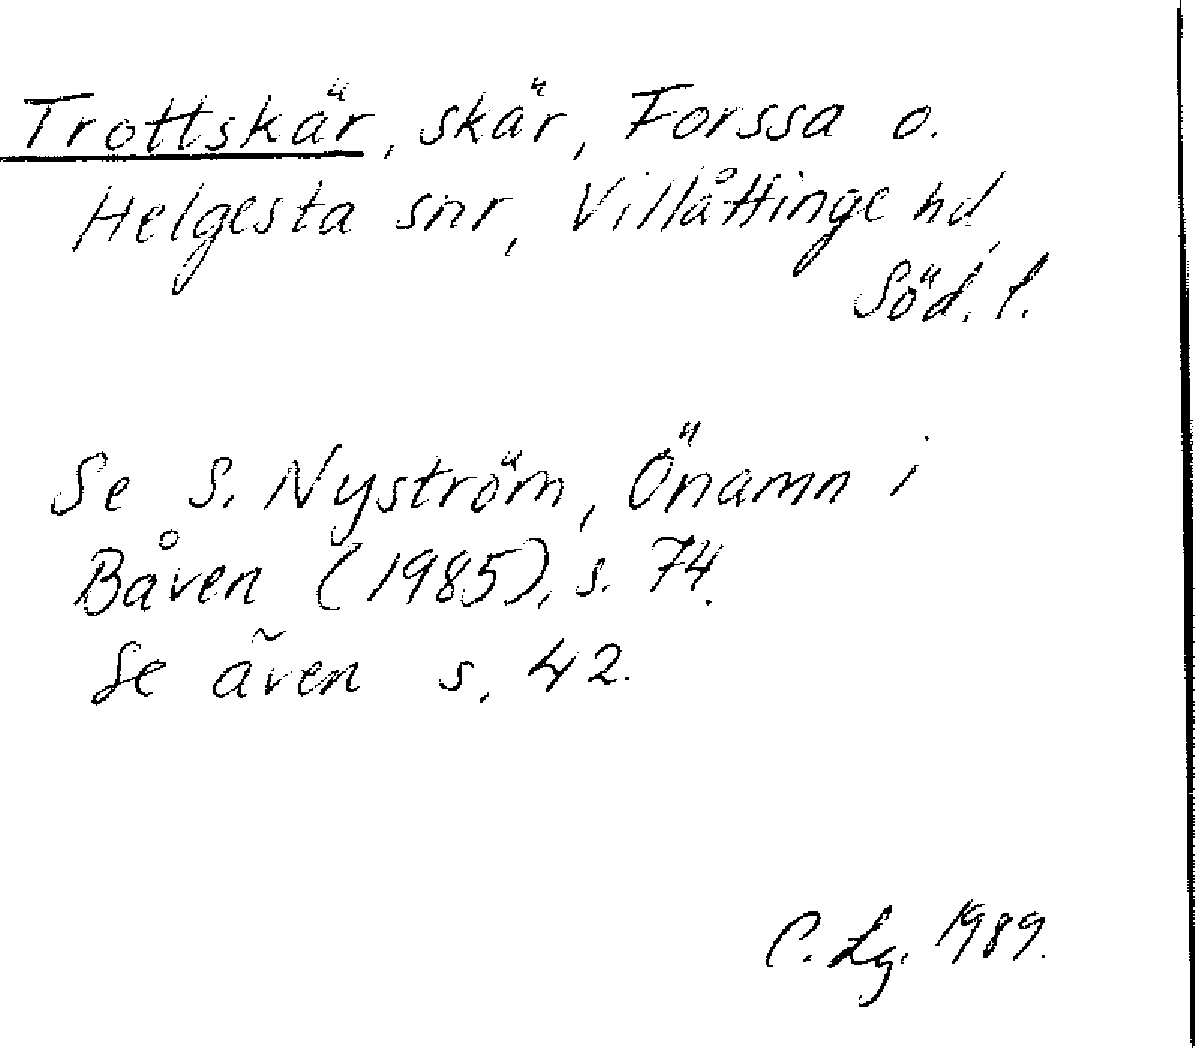 Trottskär, skär, Forssa o.
Helgesta snr, Villåttinge hd,
Söd. l.
Se S. Nyström, Önamn i
Båven (1985), s. 74.
Se även s. 42.
C. Lg. 1989.